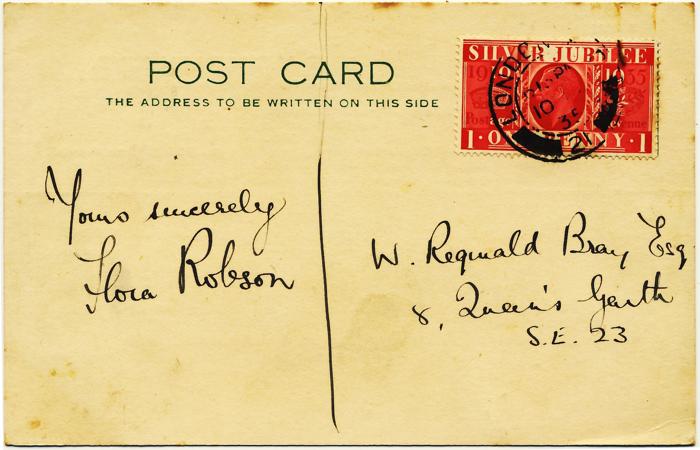 POST CARD
THE ADDRESS TO BE WRITTEN ON THIS SIDE
SILVER JUBILEE
1935
1·ONE PENNY·1
LONDON
10
35
21
Yours sincerely
Flora Robson
W. Reginald Bray Esq
8, Queen's Garth
S.E. 23